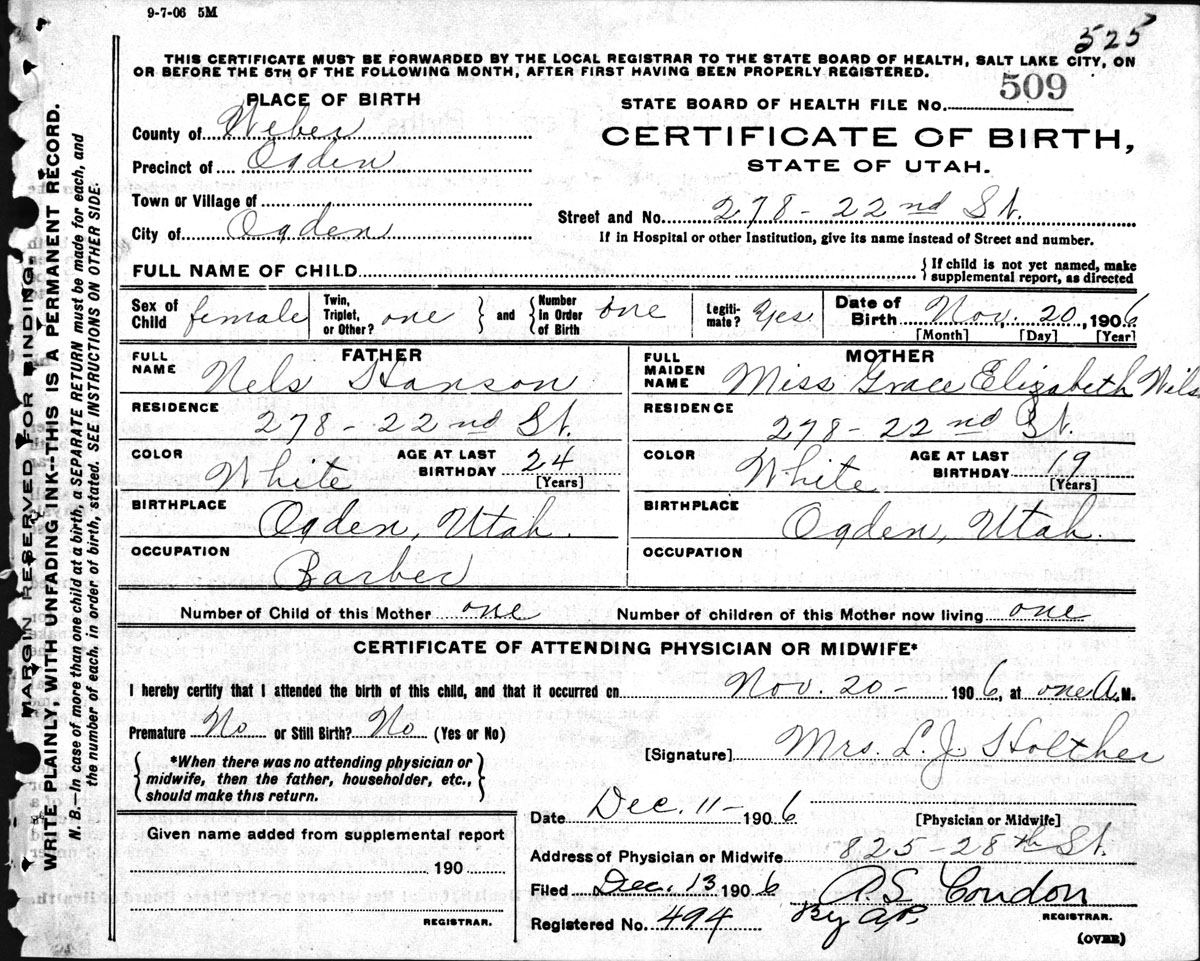 9-7-06 5M
525
THIS CERTIFICATE MUST BE FORWARDED BY THE LOCAL REGISTRAR TO THE STATE BOARD OF HEALTH, SALT LAKE CITY, ON
OR BEFORE THE 5TH OF THE FOLLOWING MONTH, AFTER FIRST HAVING BEEN PROPERLY REGISTERED.
PLACE OF BIRTH
STATE BOARD OF HEALTH FILE No. 509
County of Weber
CERTIFICATE OF BIRTH,
Precinct of Ogden
STATE OF UTAH.
Town or Village of
Street and No. 278 - 22nd St.
City of Ogden
If in Hospital or other Institution, give its name instead of Street and number.
FULL NAME OF CHILD
{ If child is not yet named, make
supplemental report, as directed
Sex of Child female
Twin, Triplet, or Other? one } and { Number in Order of Birth one
Legitimate? Yes
Date of Birth Nov. 20, 1906
[Month] [Day] [Year]
FATHER
FULL NAME Nels Hanson
RESIDENCE 278 - 22nd St.
COLOR White
AGE AT LAST BIRTHDAY 24
[Years]
BIRTHPLACE Ogden, Utah.
OCCUPATION Barber
MOTHER
FULL MAIDEN NAME Miss Grace Elizabeth Wils
RESIDENCE 278 - 22nd St.
COLOR White
AGE AT LAST BIRTHDAY 19
[Years]
BIRTHPLACE Ogden, Utah.
OCCUPATION
Number of Child of this Mother one Number of children of this Mother now living one
CERTIFICATE OF ATTENDING PHYSICIAN OR MIDWIFE*
I hereby certify that I attended the birth of this child, and that it occurred on Nov. 20 - 1906, at one A.M.
Premature No or Still Birth? No (Yes or No)
[Signature] Mrs. L. J. Holther
{ *When there was no attending physician or
midwife, then the father, householder, etc.,
should make this return. }
Date Dec. 11 - 1906
[Physician or Midwife]
Given name added from supplemental report
190
REGISTRAR.
Address of Physician or Midwife 825 - 28th St.
Filed Dec. 13 1906 A.S. Condon
REGISTRAR.
Registered No. 494 By A.P.
(OVER)
MARGIN RESERVED FOR BINDING.
WRITE PLAINLY, WITH UNFADING INK--THIS IS A PERMANENT RECORD.
N. B.—In case of more than one child at a birth, a SEPARATE RETURN must be made for each, and
the number of each, in order of birth, stated. SEE INSTRUCTIONS ON OTHER SIDE.